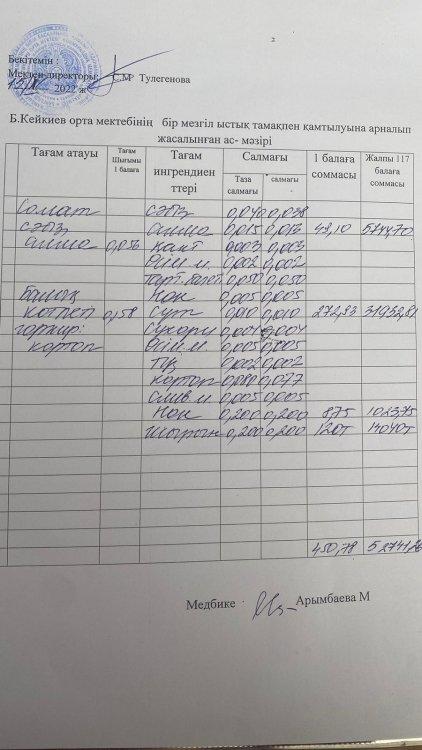 2
Бекітемін :
Мектеп директоры: С.М Тулегенова
2022 ж
Б.Кейкиев орта мектебінің бір мезгіл ыстық тамақпен қамтылуына арналып
жасалынған ас- мәзірі
Тағам атауы Тағам Шығымы 1 балаға Тағам ингредиен ттері Салмағы 1 балаға соммасы Жалпы 117 балаға соммасы
Таза салмағы салмағы
Салат сәбіз 0,040 0,038
сәбіз алма 0,015 0,013 49,10 5744,70
алма 0,056 қант 0,003 0,003
Өсім м. 0,002 0,002
0,050 0,050
Балық Нан 0,005 0,005
котлет 0,158 Сүт 0,010 0,010 272,93 31932,81
гарнир: Сухари 0,004 0,004
картоп Өсім м 0,005 0,005
Тұз 0,002 0,002
картоп 0,080 0,077
слив м 0,005 0,005
Нан 0,200 0,200 8,75 1023,75
Шырын 0,200 0,200 120т 14040т
450,78 52741,26
Медбике Арымбаева М